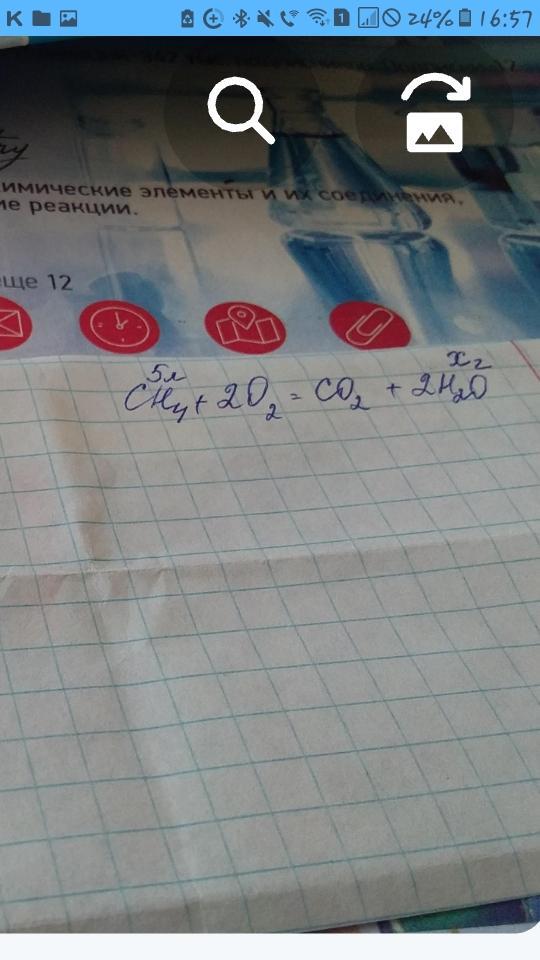 K 1 24% 16:57
try
имические элементы и их соединения,
ие реакции.
ще 12
5л x г
CH₄ + 2O₂ = CO₂ + 2H₂O